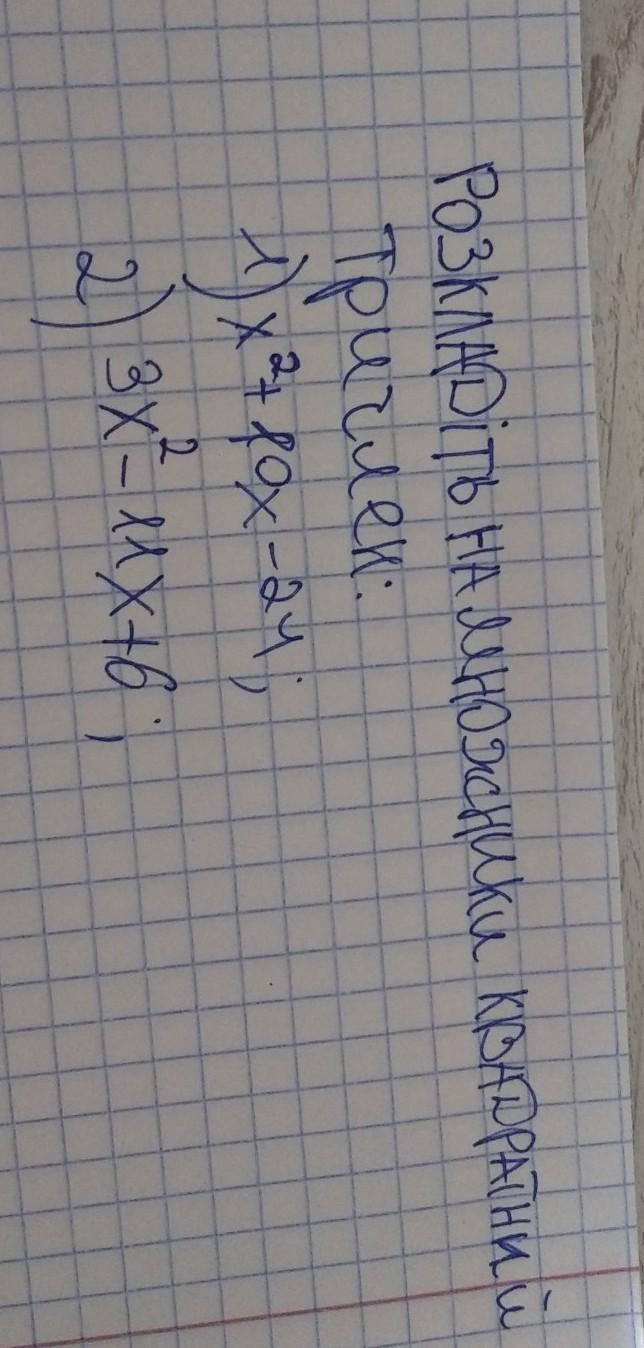 РОЗКЛАДІТЬ НА МНОЖНИКИ КВАДРАТНИЙ
тричлен:
1) x² + 10x - 24;
2) 3x² - 11x + 6;